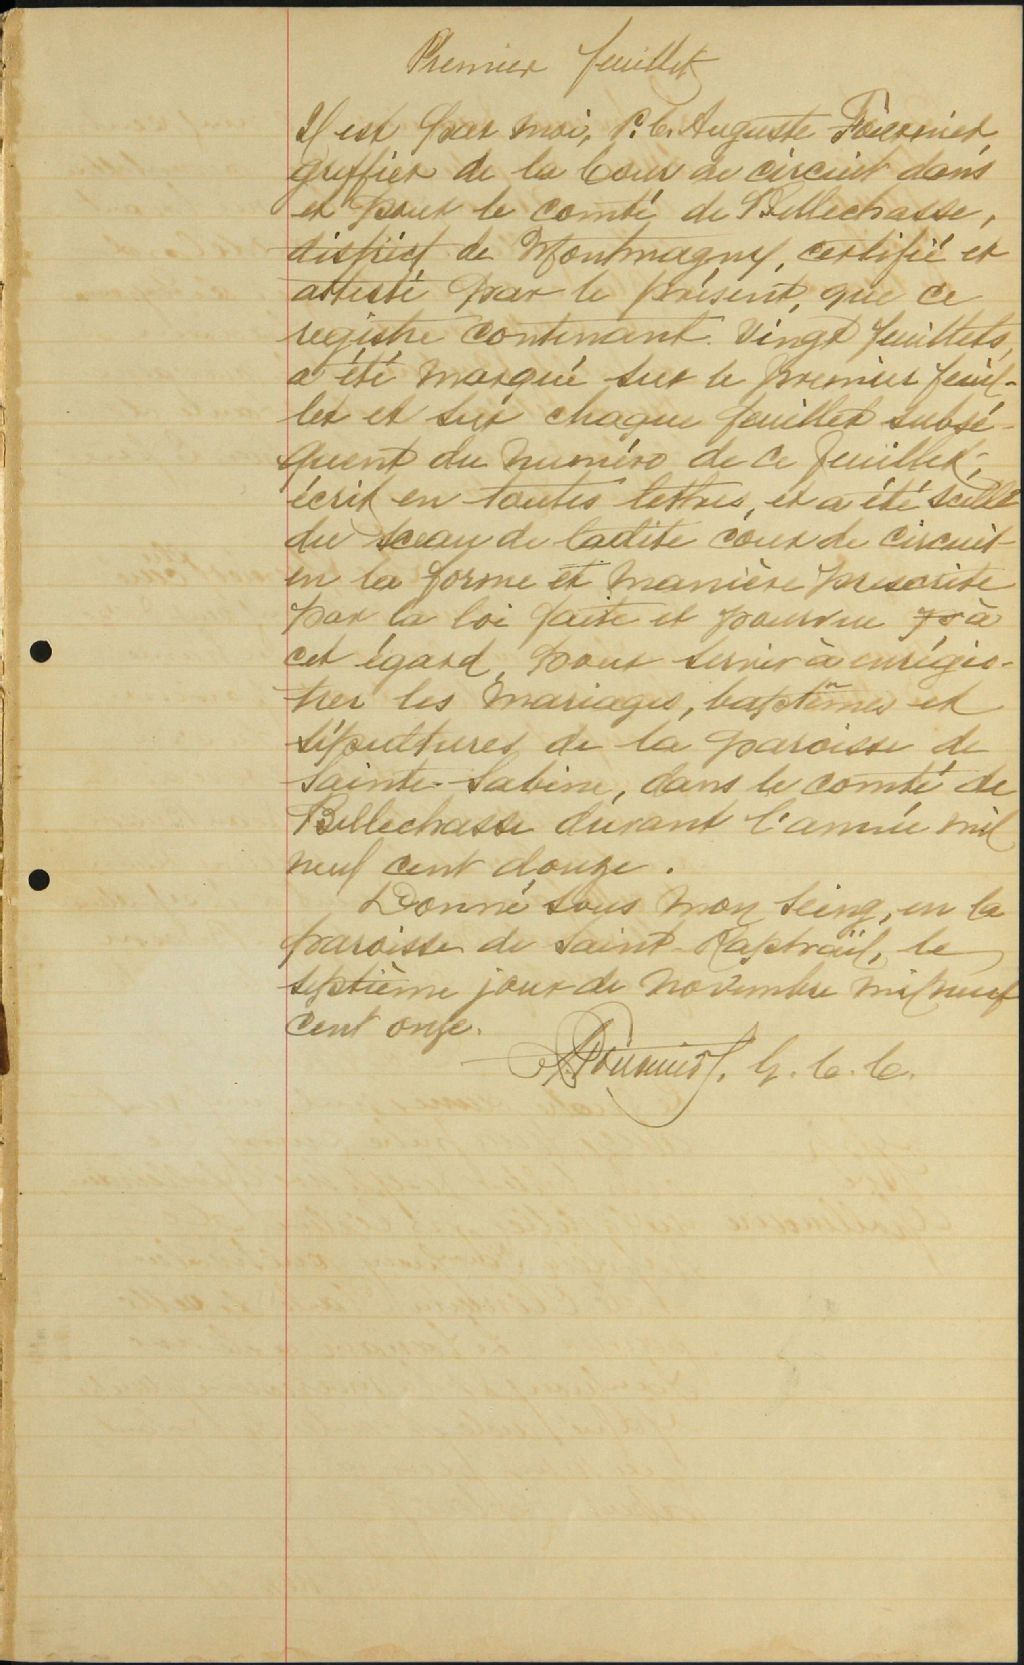 Premier feuillet
Il est par moi, P. C. Auguste Fournier,
greffier de la Cour de circuit dans
et pour le comté de Bellechasse,
district de Montmagny, certifié et
attesté par le présent, que ce
registre contenant vingt feuillets,
a été marqué sur le premier feuil-
let et sur chaque feuillet subsé-
quent du numéro de ce feuillet,
écrit en toutes lettres, et a été scellé
du sceau de ladite cour de circuit
en la forme et manière prescrite
par la loi faite et pourvue à
cet égard, pour servir à enrégis-
trer les mariages, baptêmes et
sépultures de la paroisse de
Sainte-Sabine, dans le comté de
Bellechasse durant l'année mil
neuf cent douze.
Donné sous mon seing, en la
paroisse de Saint-Raphaël, le
septième jour de novembre mil neuf
cent onze.
A. Fournier, G. C. C.